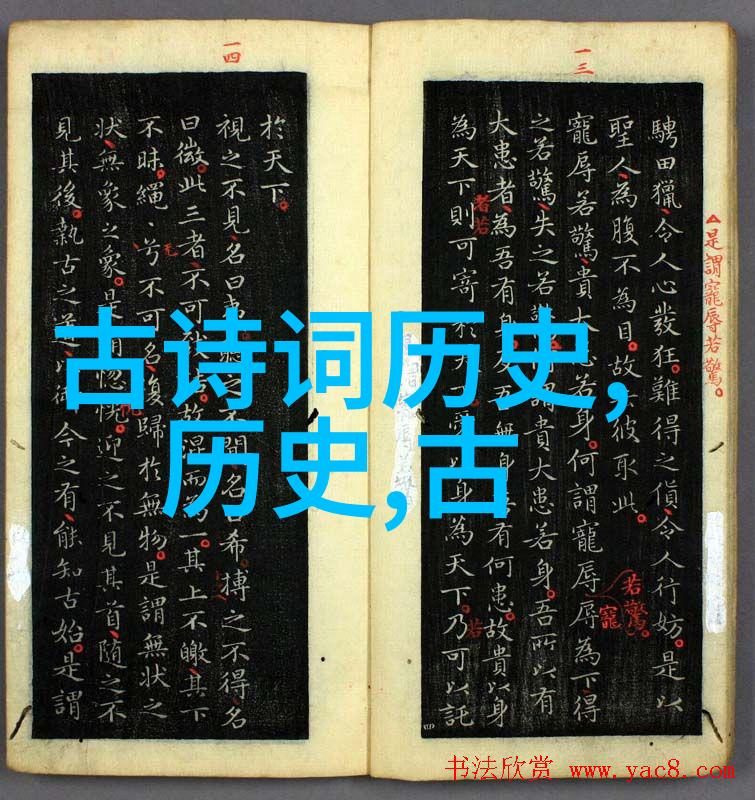 一三
△是謂寵辱若驚。
騁田獵令人心發狂。難得之貨令人行妨。是以
聖人為腹不為目。故去彼取此。
寵辱若驚貴大患若身。何謂寵辱辱為下得
之若驚失之若謂貴大患若身。吾所以有
若驚。
寵
大患者為吾有身及吾無身有何患。故貴以身
者若
為天下則可寄於天愛以身為天下。乃可以託
若
一四
於天下。
視之不見名曰夷聽之不聞名曰希搏之不得名
曰微此三者不可致故混而為一。其上不皦其下
不昧。繩〻兮不可名復歸於無物。是謂無狀之
狀無象之象。是謂惚恍。迎之不見其首隨之不
見其後。執古之道以御今之有能知古始。是謂
古诗词历史,
历史,古
书法欣赏 www.yac8.com